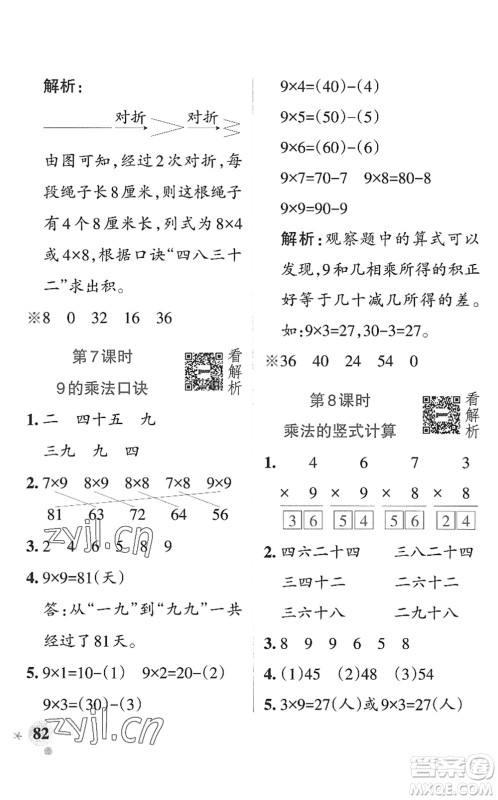 解析:
对折 对折
由图可知,经过2次对折,每
段绳子长8厘米,所以这根绳子
有4个8厘米长,列式为8×4
或4×8,根据口诀“四八三十
二”求出积。
※8 0 32 16 36
第7课时
9的乘法口诀
看解析
1. 二 四十五 九
三九 九 四
2. 7×9 8×9 9×9 8×8 7×8
81 63 72 64 56
3. 2 4 6 5 8 9
4. 9×9=81(天)
答:从“一九”到“九九”一共
经过了81天。
5. 9×1=10-(1) 9×2=20-(2)
9×3=(30)-(3)
82
9×4=(40)-(4)
9×5=(50)-(5)
9×6=(60)-(6)
9×7=70-7 9×8=80-8
9×9=90-9
解析:观察题中的算式可以
发现,9和几相乘所得的积正
好与几十减几所得的差相等。
如:9×3=27,30-3=27。
※36 40 24 54 0
第8课时
乘法的竖式计算
看解析
1. 4 6 7 3
× 9 × 9 × 8 × 8
36 54 56 24
2. 四六二十四 三八二十四
三四十二 二六十二
三六十八 二九十八
3. 8 9 9 6 5 8
4. (1)45 (2)48 (3)54
5. 3×9=27(人)或9×3=27(人)
zyjl.cn
zyjl.cn
答案圈
MXQE.COM